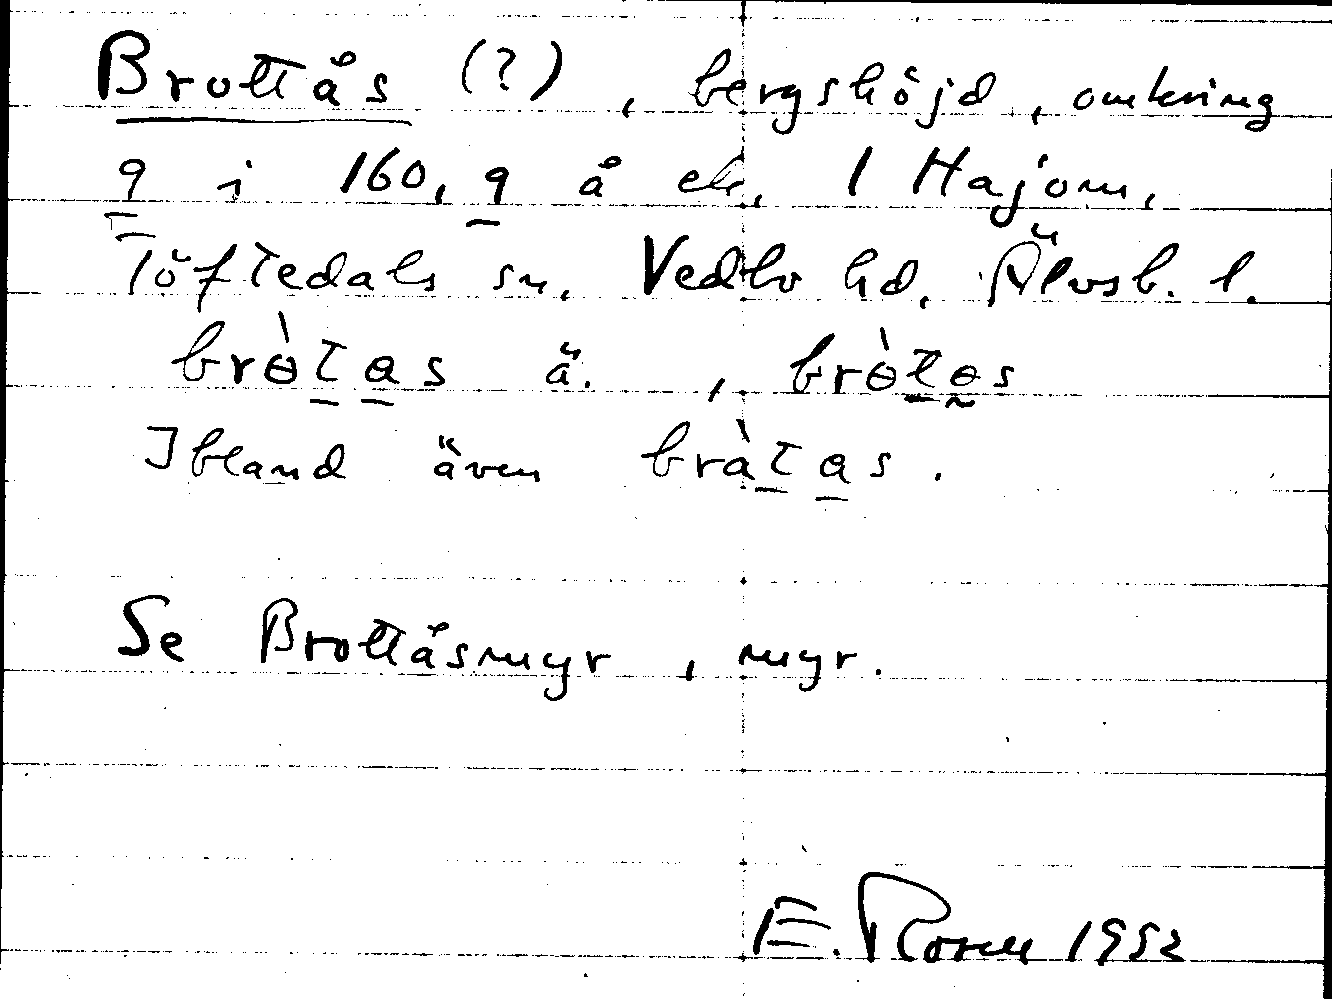 Brottås (?), bergshöjd, omkring
9 i 160, 9 å ek. 1 Hajom,
Töftedals sn. Vedbo hd. Älvsb. l.
brɵ̀tas ä. , brɵ̀tɵs
Ibland även bràtas.
Se Brottåsmyr, myr.
E. Rosell 1952